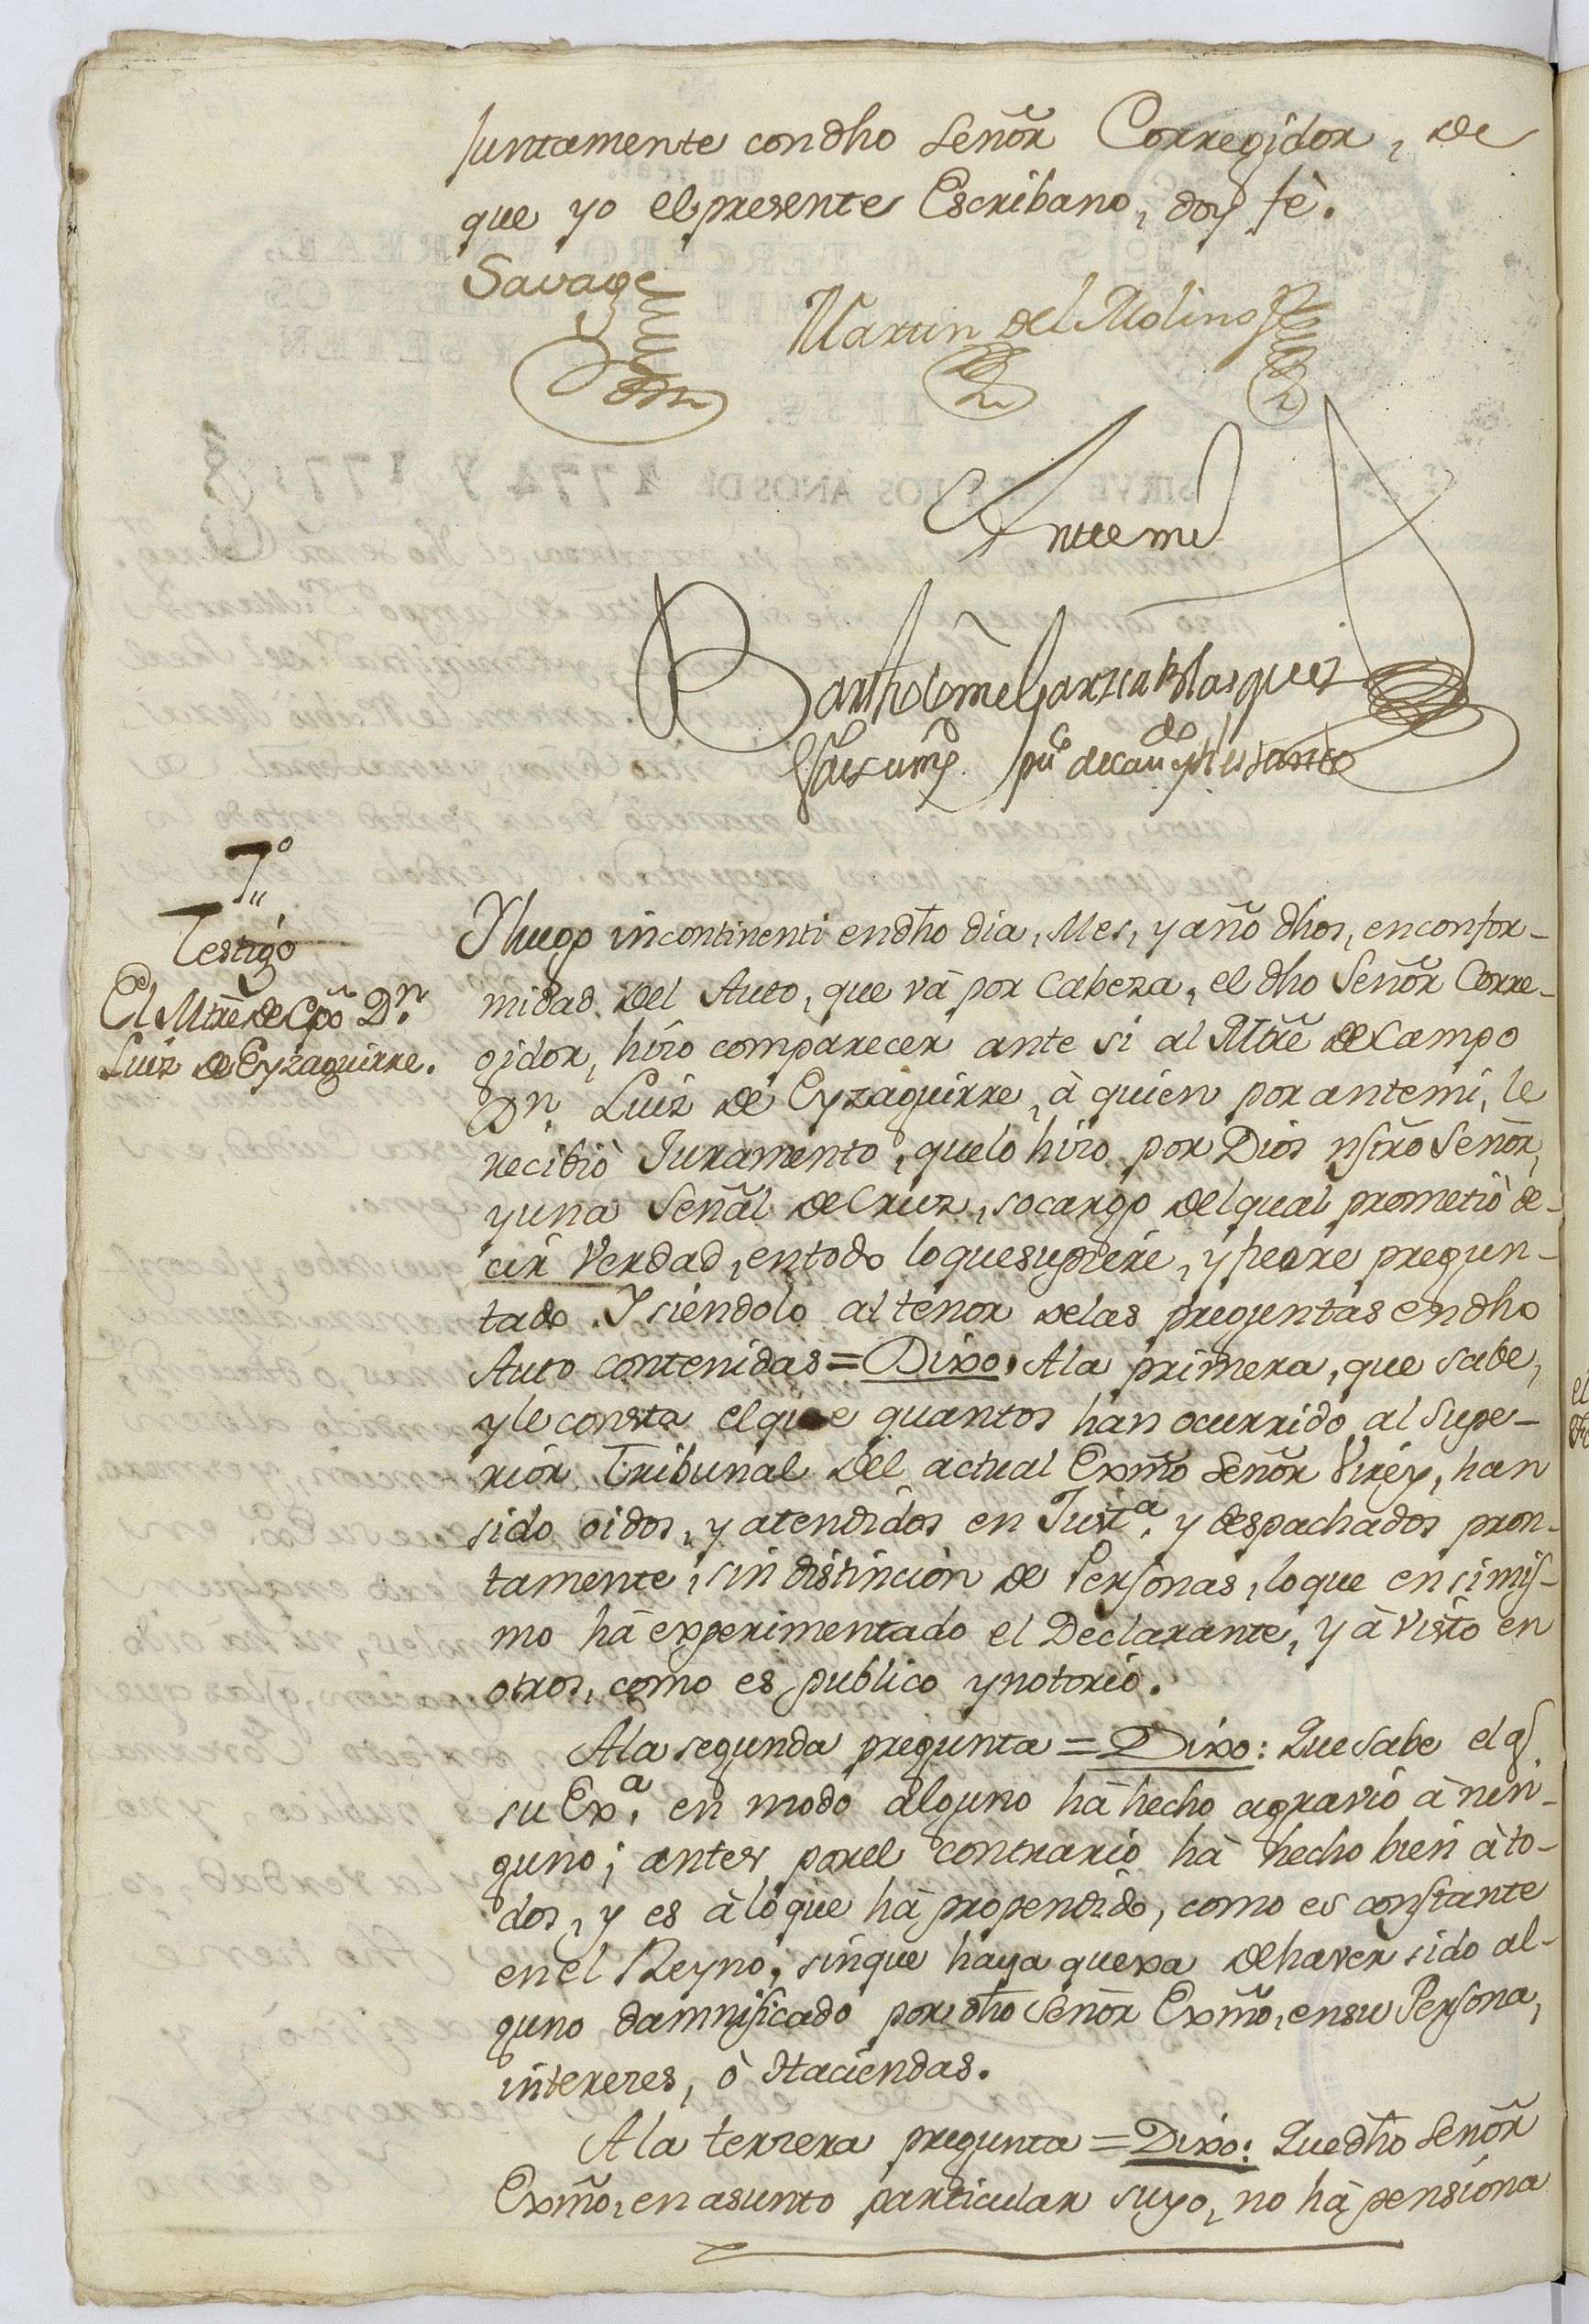 Juntamente con dho Señor Corregidor, de
que yo el presente Escribano, doy fè.
Savage
Martin del Molino
Ante mi
Bartholome Garzia Blasquez
7º
Testigo
El Mtrẽ de Cpõ Dn.
Luiz de Eyzaguirre.
Y luego incontinenti en dho dia, Mes, y año dhos, en confor-
midad del Auto, que và por Cabeza, el dho Señor Corre-
gidor, hizo comparecer ante si al Mtrẽ de Campo
Dn. Luiz de Eyzaguirre, à quien por antemi, le
recibiò Juramento, que lo hizo por Dios nstrõ Señor,
y una Señal de Cruz, so cargo del qual prometiò de-
cir Verdad, en todo lo que supiere, y fuere pregun-
tado. Y siendolo al tenor de las preguntas en dho
Auto contenidas = Dixo. A la primera, que sabe,
y le consta el que quantos han ocurrido al Supe-
rior Tribunal del actual Exmõ Señor Virèy, han
sido oidos, y atendidos en Justª. y despachados pron-
tamente, sin distincion de Personas, lo que en si mis-
mo hà experimentado el Declarante, y à visto en
otros, como es publico y notorio.
A la segunda pregunta = Dixo: Que sabe el q.
su Exª. en modo alguno hà hecho agravio à nin-
guno; antes por el contrario hà hecho bien à to-
dos, y es à lo que hà propendido, como es constante
en el Reyno, sin que haya quexa de haver sido al-
guno damnificado por dho Señor Exmõ, en su Persona,
interezes, ò Haciendas.
A la terzera pregunta = Dixo: Que dho Señor
Exmõ, en asunto particular suyo, no hà pensiona